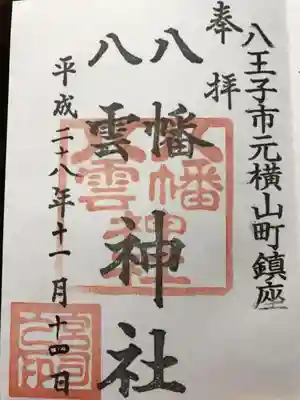 八王子市元横山町鎮座
奉拝
八幡
八雲
神社
平成二十八年十一月十四日